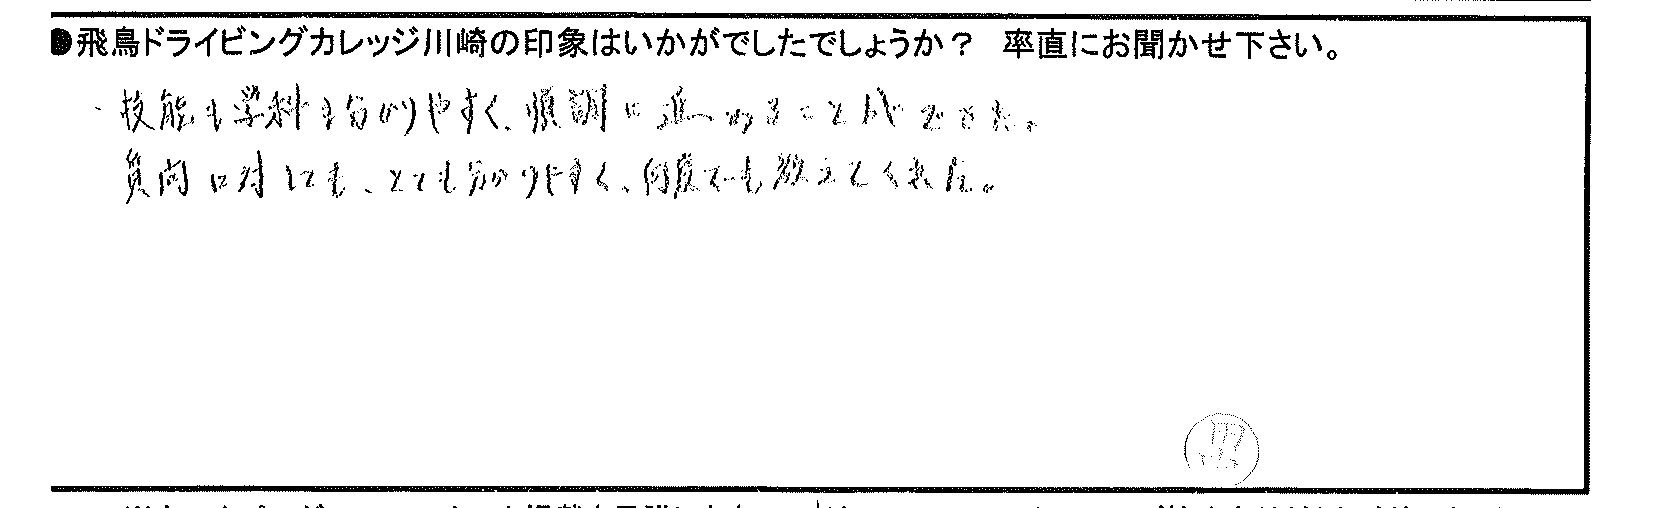 ●飛鳥ドライビングカレッジ川崎の印象はいかがでしたでしょうか？ 率直にお聞かせ下さい。
・技能も学科も分かりやすく、順調に進めることができた。
質問に対しても、とても分かりやすく、何度でも教えてくれた。